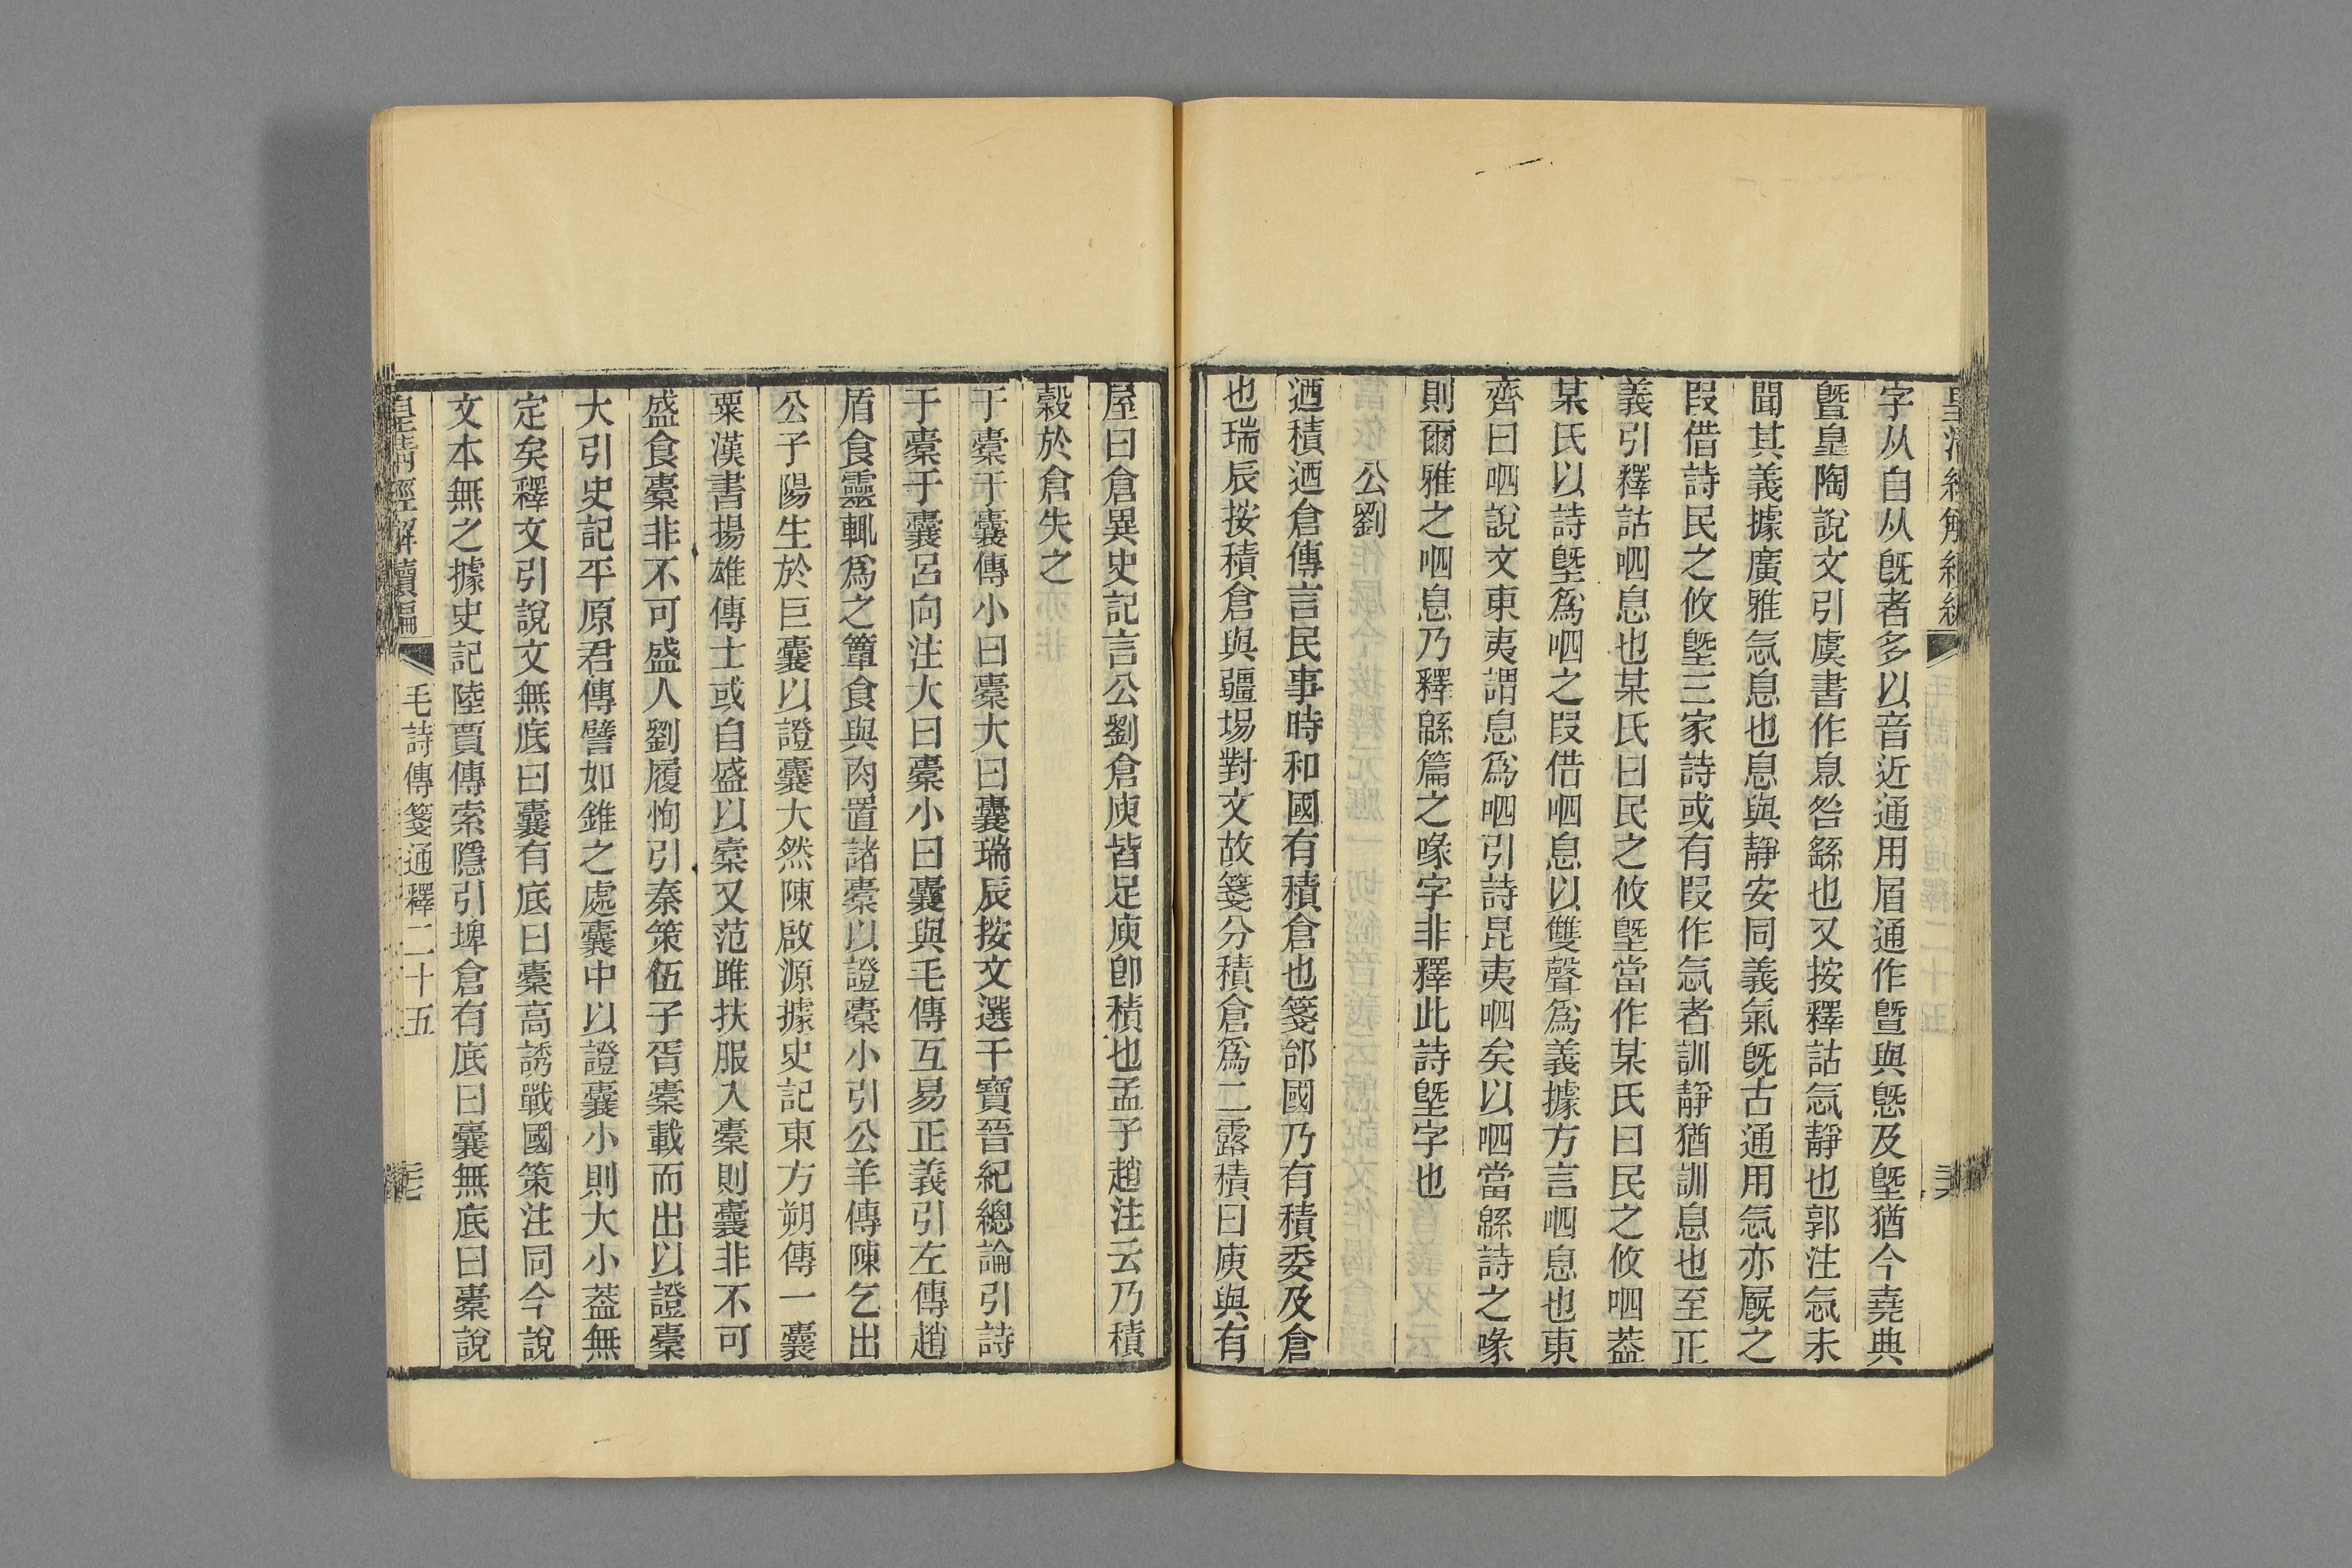 字从自从旣者多以音近通用眉通作曁與懸及墍猶今堯典
曁皐陶說文引虞書作㒫咎繇也又按釋詁忥靜也郭注忥未
聞其義據廣雅忥息也息與靜安同義氣旣古通用忥亦厩之
叚借詩民之攸墍三家詩或有叚作忥者訓靜猶訓息也至正
義引釋詁呬息也某氏曰民之攸墍當作某氏曰民之攸呬葢
某氏以詩墍爲呬之叚借呬息以雙聲爲義據方言呬息也東
齊曰呬說文東夷謂息爲呬引詩昆夷呬矣以呬當緜詩之喙
則爾雅之呬息乃釋緜篇之喙字非釋此詩墍字也
公劉
迺積迺倉傳言民事時和國有積倉也箋邰國乃有積委及倉
也瑞辰按積倉與疆場對文故箋分積倉爲二露積曰庾與有
屋曰倉異史記言公劉倉庾皆足庾卽積也孟子趙注云乃積
穀於倉失之
于橐于囊傳小曰橐大曰囊瑞辰按文選干寶晉紀總論引詩
于橐于囊呂向注大曰橐小曰囊與毛傳互易正義引左傳趙
盾食靈輒爲之簞食與肉置諸橐以證橐小引公羊傳陳乞出
公子陽生於巨囊以證囊大然陳啟源據史記東方朔傳一囊
粟漢書揚雄傳士或自盛以橐又范雎扶服入橐則囊非不可
盛食橐非不可盛人劉履恂引秦策伍子胥橐載而出以證橐
大引史記平原君傳譬如錐之處囊中以證囊小則大小葢無
定矣釋文引說文無底曰囊有底曰橐高誘戰國策注同今說
文本無之據史記陸賈傳索隱引埤倉有底曰囊無底曰橐說
皇清經解續編
毛詩傳箋通釋二十五